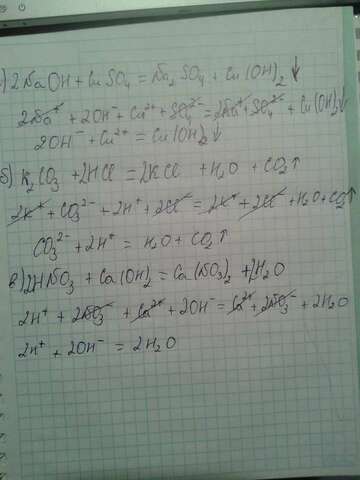 а) 2NaOH + CuSO₄ = Na₂SO₄ + Cu(OH)₂↓
2Na⁺ + 2OH⁻ + Cu²⁺ + SO₄²⁻ = 2Na⁺ + SO₄²⁻ + Cu(OH)₂↓
2OH⁻ + Cu²⁺ = Cu(OH)₂↓
б) K₂CO₃ + 2HCl = 2KCl + H₂O + CO₂↑
2K⁺ + CO₃²⁻ + 2H⁺ + 2Cl⁻ = 2K⁺ + 2Cl⁻ + H₂O + CO₂↑
CO₃²⁻ + 2H⁺ = H₂O + CO₂↑
в) 2HNO₃ + Ca(OH)₂ = Ca(NO₃)₂ + 2H₂O
2H⁺ + 2NO₃⁻ + Ca²⁺ + 2OH⁻ = Ca²⁺ + 2NO₃⁻ + 2H₂O
2H⁺ + 2OH⁻ = 2H₂O